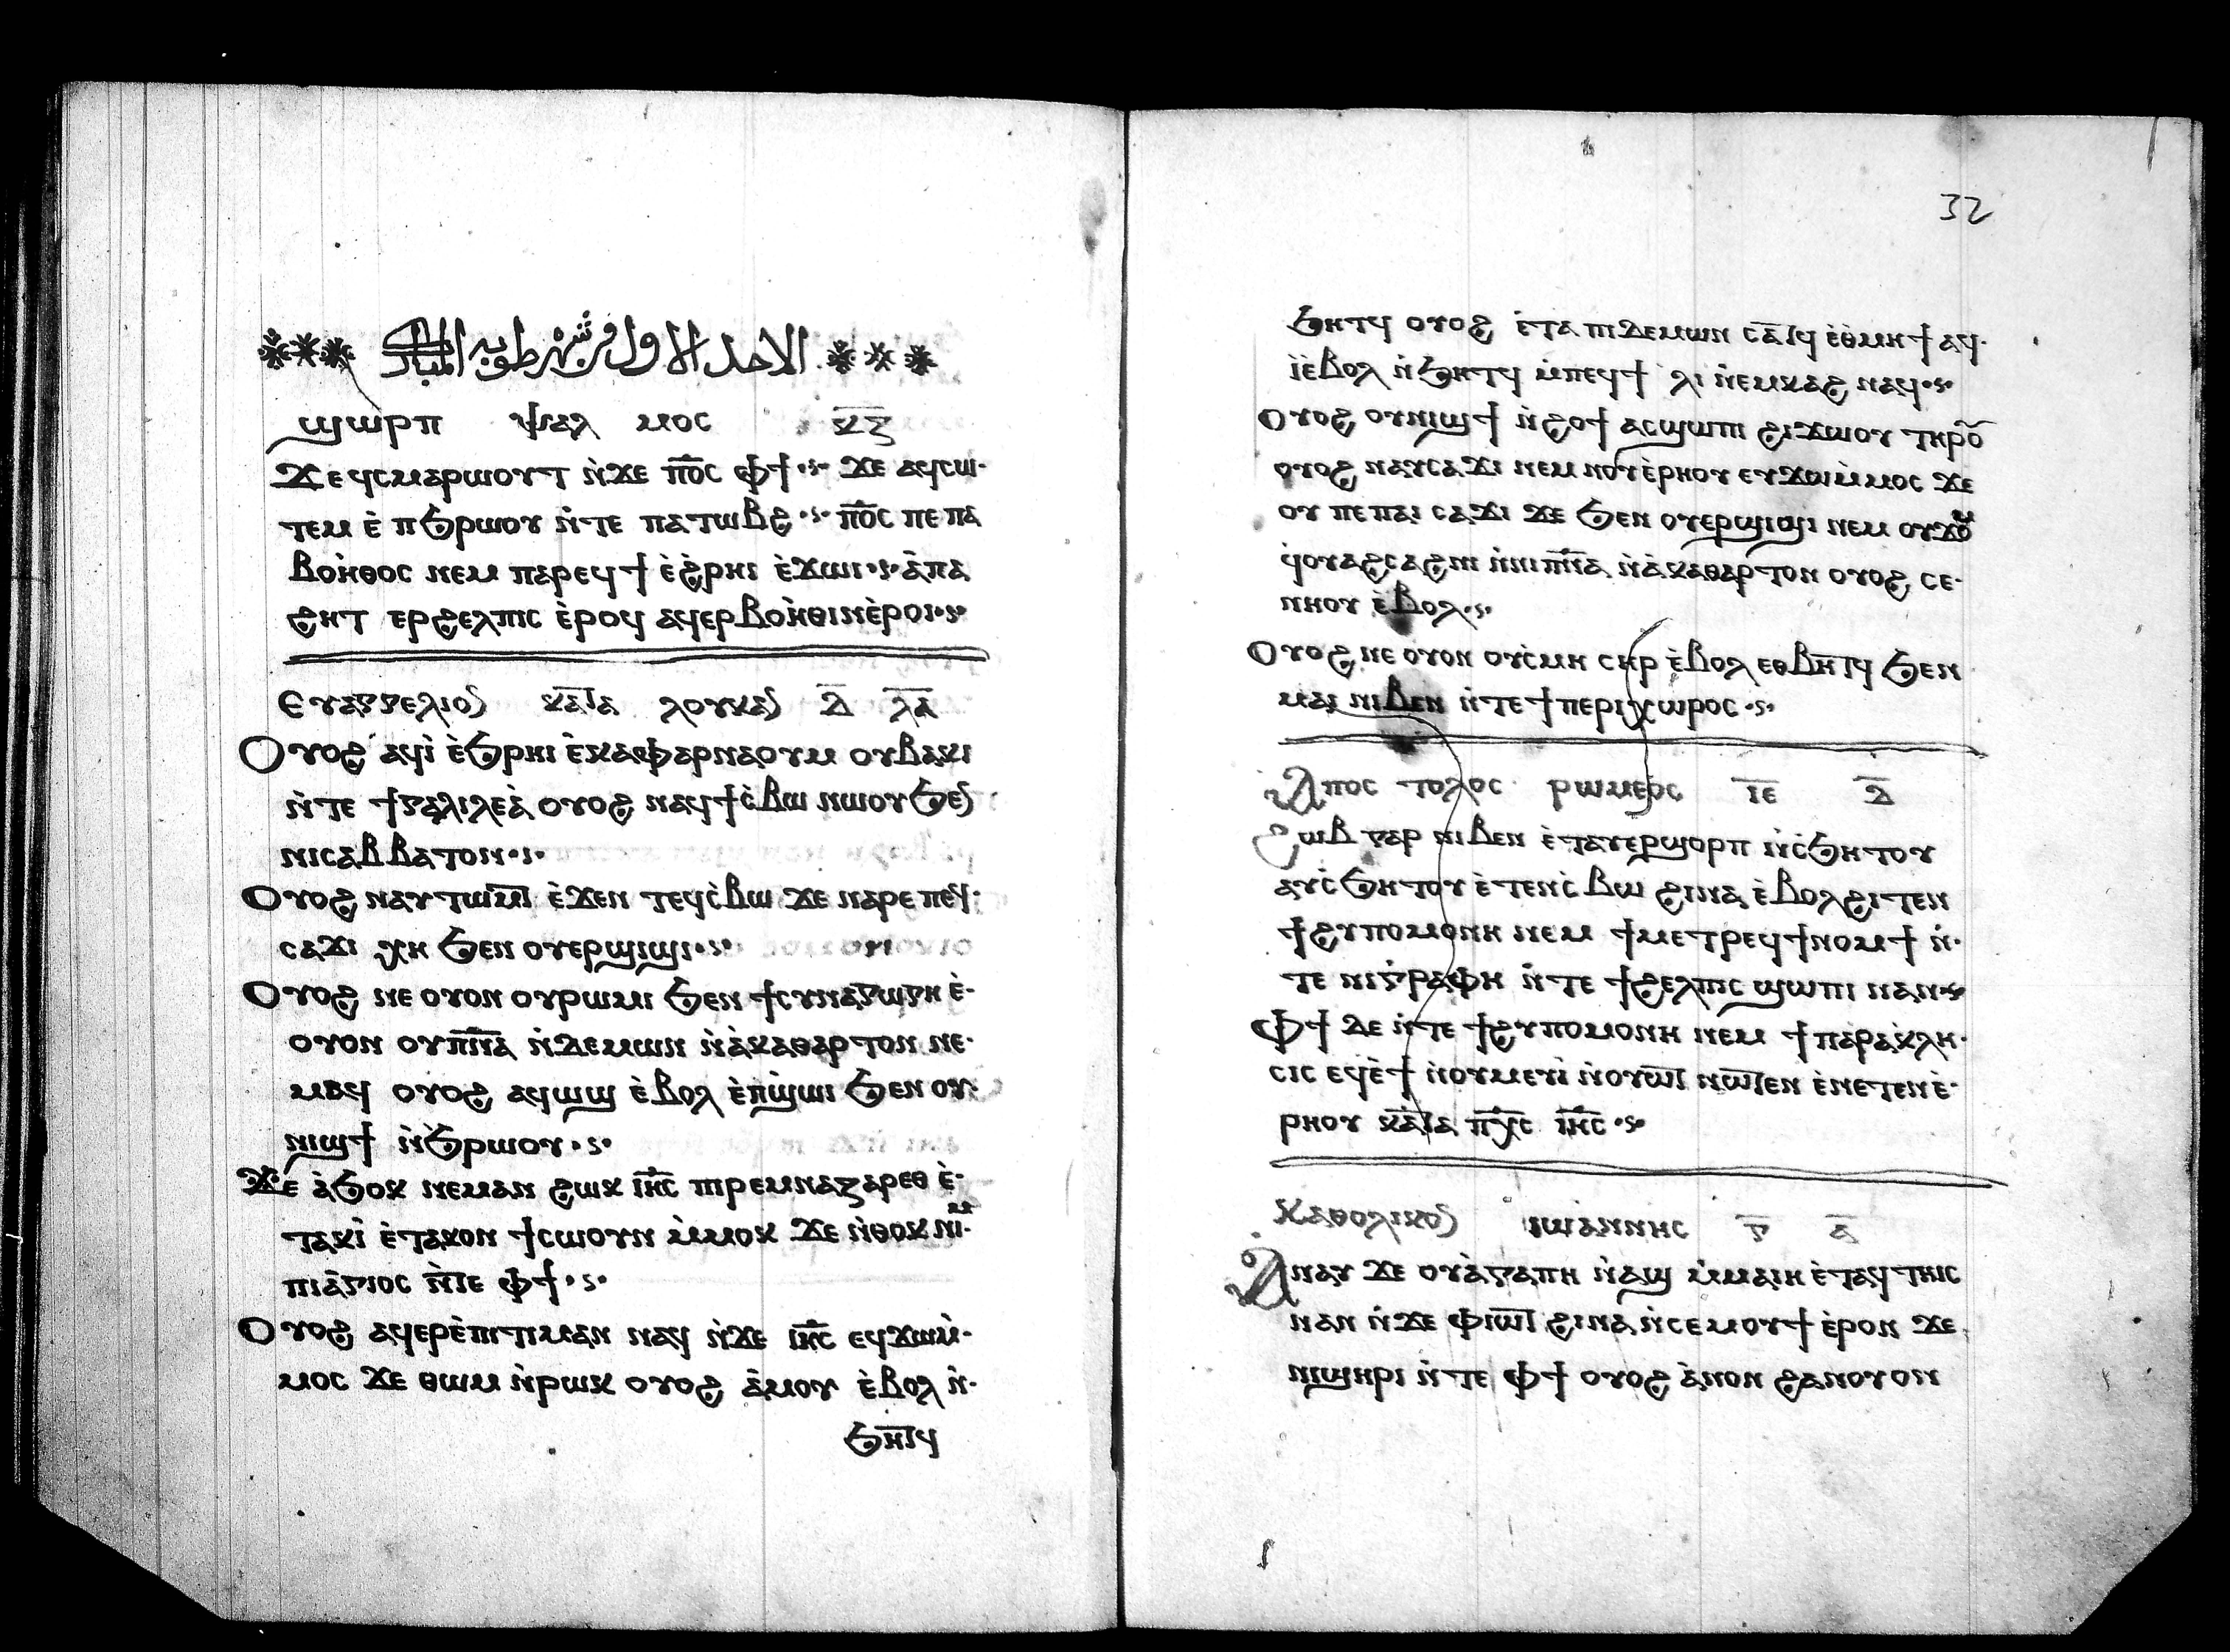 الاحد الاول من شهر طوبه المبارك
ϣⲱⲣⲡ ⲯⲁⲗ ⲙⲟⲥ ⲕ̅ⲍ̅
ϫⲉ ϥⲥⲙⲁⲣⲱⲟⲩⲧ ⲛ̀ϫⲉ ⲡ̅ⲟ̅ⲥ̅ ⲫϯ ϫⲉ ⲁϥⲥⲱ
ⲧⲉⲙ ⲉ̀ ⲡϧⲣⲱⲟⲩ ⲛ̀ⲧⲉ ⲡⲁⲧⲱⲃϩ ⲡ̅ⲟ̅ⲥ̅ ⲡⲉ ⲡⲁ
ⲃⲟⲏ̀ⲑⲟⲥ ⲛⲉⲙ ⲡⲁⲣⲉϥϯ ⲉ̀ϩ̀ⲣⲏⲓ ⲉ̀ϫⲱⲓ ⲁ̀ⲡⲁ
ϩⲏⲧ ⲉⲣϩⲉⲗⲡⲓⲥ ⲉ̀ⲣⲟϥ ⲁϥⲉⲣⲃⲟⲏ̀ⲑⲓⲛ ⲉ̀ⲣⲟⲓ
ⲉⲩⲁⲅⲅⲉⲗⲓⲟⲛ ⲕⲁⲧⲁ ⲗⲟⲩⲕⲁⲛ ⲇ̅ ⲗ̅ⲁ̅
ⲟⲩⲟϩ ⲁϥⲓ̀ ⲉ̀ϧⲣⲏⲓ ⲉ̀ⲕⲁⲫⲁⲣⲛⲁⲟⲩⲙ ⲟⲩⲃⲁⲕⲓ
ⲛ̀ⲧⲉ ϯⲅⲁⲗⲓⲗⲉⲁ̀ ⲟⲩⲟϩ ⲛⲁϥϯⲥ̀ⲃⲱ ⲛⲱⲟⲩ ϧⲉⲛ
ⲛⲓⲥⲁⲃⲃⲁⲧⲟⲛ
ⲟⲩⲟϩ ⲛⲁⲩⲧⲱⲙⲧ ⲉ̀ϫⲉⲛ ⲧⲉϥⲥ̀ⲃⲱ ϫⲉ ⲛⲁⲣⲉ ⲡⲉϥ
ⲥⲁϫⲓ ⲭⲏ ϧⲉⲛ ⲟⲩⲉⲣϣⲓϣⲓ
ⲟⲩⲟϩ ⲛⲉ ⲟⲩⲟⲛ ⲟⲩⲣⲱⲙⲓ ϧⲉⲛ ϯⲥⲩⲛⲁⲅⲱⲅⲏ ⲉ̀
ⲟⲩⲟⲛ ⲟⲩⲡ̅ⲛ̅ⲁ̅ ⲛ̀ⲇⲉⲙⲱⲛ ⲛ̀ⲁ̀ⲕⲁⲑⲁⲣⲧⲟⲛ ⲛⲉ
ⲙⲁϥ ⲟⲩⲟϩ ⲁϥⲱϣ ⲉ̀ⲃⲟⲗ ⲉ̀ⲡ̀ϣⲱⲓ ϧⲉⲛ ⲟⲩ
ⲛⲓϣϯ ⲛ̀ϧ̀ⲣⲱⲟⲩ
ϫⲉ ⲁ̀ϧⲟⲕ ⲛⲉⲙⲁⲛ ϩⲱⲕ ⲓ̅ⲏ̅ⲥ̅ ⲡⲓⲣⲉⲙⲛⲁⲍⲁⲣⲉⲑ ⲉ̀
ⲧⲁⲕⲓ̀ ⲉ̀ⲧⲁⲕⲟⲛ ϯⲥⲱⲟⲩⲛ ⲙ̀ⲙⲟⲕ ϫⲉ ⲛ̀ⲑⲟⲕ ⲛⲓⲙ
ⲡⲓⲁ̀ⲅⲓⲟⲥ ⲛ̀ⲧⲉ ⲫϯ
ⲟⲩⲟϩ ⲁϥⲉⲣⲉ̀ⲡⲓⲧⲓⲙⲁⲛ ⲛⲁϥ ⲛ̀ϫⲉ ⲓ̅ⲏ̅ⲥ̅ ⲉϥϫⲱⲙ̀
ⲙⲟⲥ ϫⲉ ⲑⲱⲙ ⲛ̀ⲣⲱⲕ ⲟⲩⲟϩ ⲁ̀ⲙⲟⲩ ⲉ̀ⲃⲟⲗ ⲛ̀
ϧⲏⲧϥ
32
ϧⲏⲧϥ ⲟⲩⲟϩ ⲉ̀ⲧⲁ ⲡⲓⲇⲉⲙⲱⲛ ⲥⲁⲧϥ ⲉ̀ⲑⲙⲏϯ ⲁϥ
ⲓ̀ⲉ̀ⲃⲟⲗ ⲛ̀ϧⲏⲧϥ ⲙ̀ⲡⲉϥϯ ϩⲗⲓ ⲛ̀ⲉⲙⲕⲁϩ ⲛⲁϥ
ⲟⲩⲟϩ ⲟⲩⲛⲓϣϯ ⲛ̀ϩⲟϯ ⲁⲥϣⲱⲡⲓ ϩⲓϫⲱⲟⲩ ⲧⲏⲣⲟⲩ
ⲟⲩⲟϩ ⲛⲁⲩⲥⲁϫⲓ ⲛⲉⲙ ⲛⲟⲩⲉ̀ⲣⲏⲟⲩ ⲉⲩϫⲱⲙ̀ⲙⲟⲥ ϫⲉ
ⲟⲩ ⲡⲉ ⲡⲁⲓ ⲥⲁϫⲓ ϫⲉ ϧⲉⲛ ⲟⲩⲉⲣϣⲓϣⲓ ⲛⲉⲙ ⲟⲩϫⲟⲙ
ϥ̀ⲟⲩⲁϩⲥⲁϩⲛⲓ ⲛ̀ⲛⲓⲡ̅ⲛ̅ⲁ̅ ⲛ̀ⲁ̀ⲕⲁⲑⲁⲣⲧⲟⲛ ⲟⲩⲟϩ ⲥⲉ
ⲛⲏⲟⲩ ⲉ̀ⲃⲟⲗ
ⲟⲩⲟϩ ⲛⲉ ⲟⲩⲟⲛ ⲟⲩⲥ̀ⲙⲏ ⲥⲏⲣ ⲉ̀ⲃⲟⲗ ⲉⲑⲃⲏⲧϥ ϧⲉⲛ
ⲙⲁⲓ ⲛⲓⲃⲉⲛ ⲛ̀ⲧⲉ ϯⲡⲉⲣⲓⲭⲱⲣⲟⲥ
ⲁⲡⲟⲥ ⲧⲟⲗⲟⲥ ⲣⲱⲙⲉⲟⲥ ⲓ̅ⲉ̅ ⲇ̅
ϩⲱⲃ ⲅⲁⲣ ⲛⲓⲃⲉⲛ ⲉ̀ⲧⲁⲩⲉⲣϣⲟⲣⲡ ⲛ̀ⲥ̀ϧⲏⲧⲟⲩ
ⲁⲩⲥ̀ϧⲏⲧⲟⲩ ⲉ̀ⲧⲉⲛⲥ̀ⲃⲱ ϩⲓⲛⲁ ⲉ̀ⲃⲟⲗϩⲓⲧⲉⲛ
ϯϩⲩⲡⲟⲙⲟⲛⲏ ⲛⲉⲙ ϯⲙⲉⲧⲣⲉϥϯⲛⲟⲙϯ ⲛ̀
ⲧⲉ ⲛⲓⲅ̀ⲣⲁⲫⲏ ⲛ̀ⲧⲉ ϯϩⲉⲗⲡⲓⲥ ϣⲱⲡⲓ ⲛⲁⲛ
ⲫϯ ⲇⲉ ⲛ̀ⲧⲉ ϯϩⲩⲡⲟⲙⲟⲛⲏ ⲛⲉⲙ ϯⲡⲁⲣⲁⲕⲗⲏ
ⲥⲓⲥ ⲉϥⲉ̀ϯ ⲛ̀ⲟⲩⲙⲉⲩⲓ̀ ⲛ̀ⲟⲩⲱⲧ ⲛⲱⲧⲉⲛ ⲉ̀ⲛⲉⲧⲉⲛⲉ̀
ⲣⲏⲟⲩ ⲕⲁⲧⲁ ⲡ̅ⲭ̅ⲥ̅ ⲓ̅ⲏ̅ⲥ̅
ⲕⲁⲑⲟⲗⲓⲕⲟⲛ ⲓⲱⲁⲛⲛⲏⲥ ⲅ̅ ⲁ̅
ⲁⲛⲁⲩ ϫⲉ ⲟⲩⲁ̀ⲅⲁⲡⲏ ⲛ̀ⲁϣ ⲙ̀ⲙⲁⲓⲏ ⲉ̀ⲧⲁϥⲧⲏⲓⲥ
ⲛⲁⲛ ⲛ̀ϫⲉ ⲫⲓⲱⲧ ϩⲓⲛⲁ ⲛ̀ⲥⲉⲙⲟⲩϯ ⲉ̀ⲣⲟⲛ ϫⲉ
ⲛⲓϣⲏⲣⲓ ⲛ̀ⲧⲉ ⲫϯ ⲟⲩⲟϩ ⲁ̀ⲛⲟⲛ ϩⲁⲛⲟⲩⲟⲛ